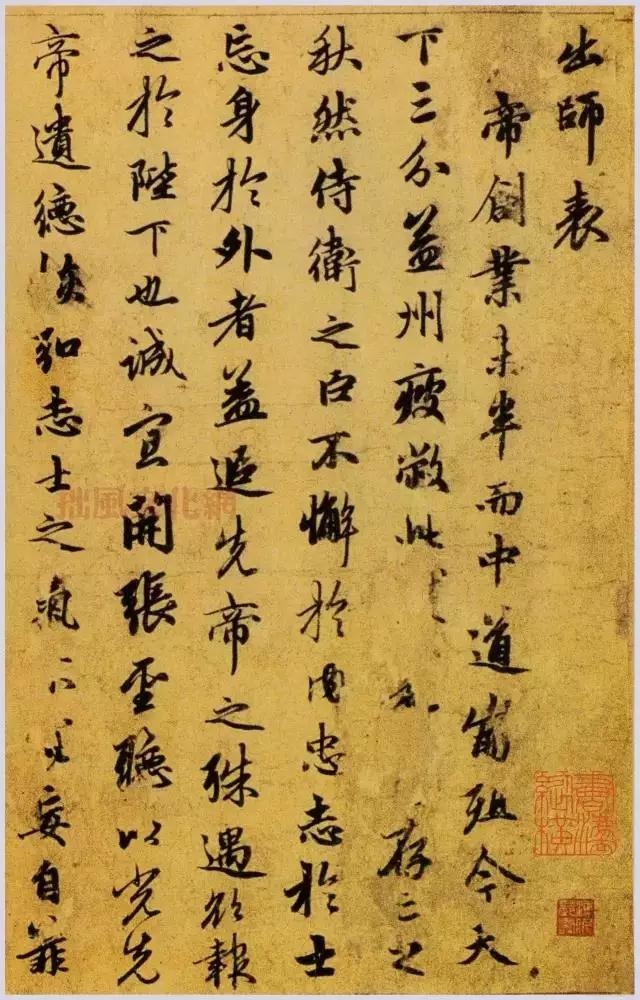 出師表
帝創業未半而中道崩殂今天
下三分益州疲敝此存亡之
秋然侍衛之臣不懈於内忠志於士
忘身於外者蓋追先帝之殊遇欲報
之於陛下也誠宜開張聖聽以光先
帝遺德恢弘志士之氣不宜妄自菲
拙風文化網